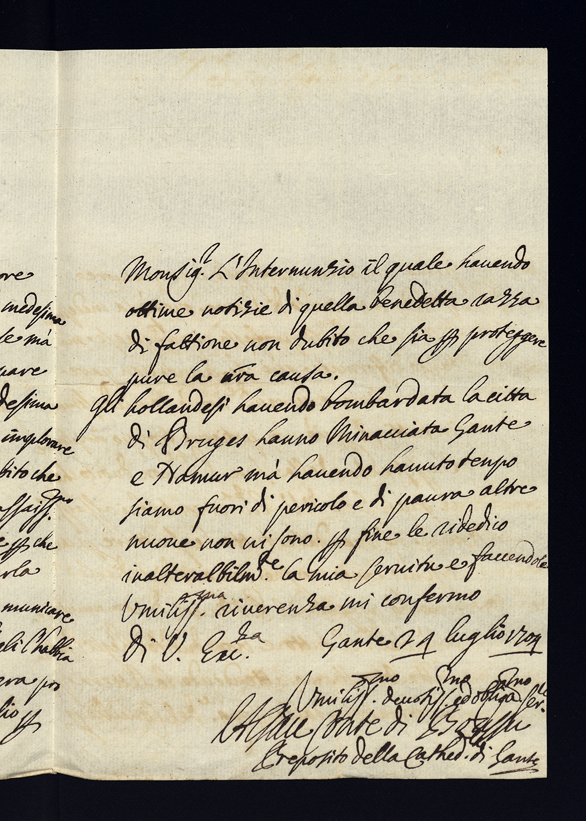 ore
medesima
le mà
uare
desima
implorare
bito che
che
rla
municare
era
Monsig.r L'Internunzio il quale havendo
ottime notizie di quella benedetta razza
di fattione non dubito che sia p proteggere
pure la nra causa.
gli hollandesi havendo bombardata la città
di Bruges hanno Minacciata Gante
e Namur mà havendo havuto tempo
siamo fuori di pericolo e di paura altre
nuove non vi sono. p fine le ridedico
inalterabilm.te la mia servitu e facendole
Vmiliss.ma riverenza mi confermo
Di V. Ecc.za Gante 24 luglio 1704
Vmiliss.mo devotiss.mo ed obliga.mo Ser.re
Conte di
Preposito della Cathed. di Gante